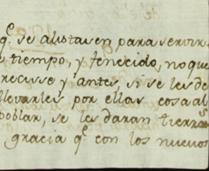 q.e se alistasen para servir
tiempo, y fenecido, no que
recurse y antes, si se les de
llevarles por ellas cosa al
poblar, se les daran tierras
gracia q.e con los nuevos